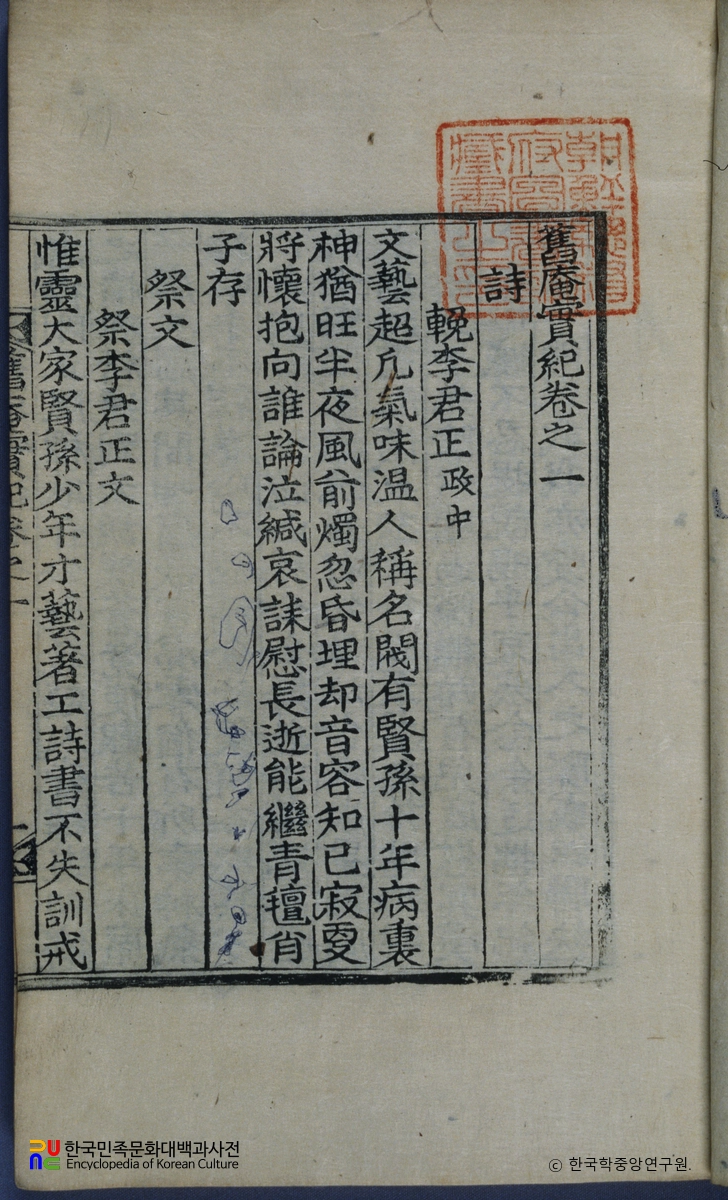 舊庵實紀卷之一
詩
輓李君正 政中
文藝超凡氣味温人稱名閥有賢孫十年病裏
神猶旺半夜風前燭忽昏埋却音容知已寂更
將懷抱向誰論泣緘哀誄慰長逝能繼青氊肖
子存
祭文
祭李君正文
惟靈大家賢孫少年才藝著工詩書不失訓戒
舊庵實紀卷之一
朝鮮總督
府圖書
藏書之印
한국민족문화대백과사전
Encyclopedia of Korean Culture
© 한국학중앙연구원.